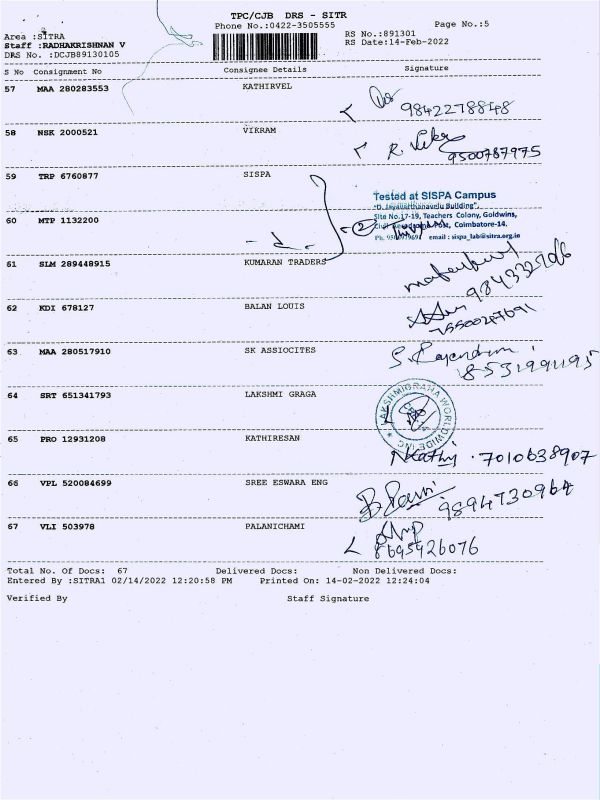 TPC/CJB DRS - SITR
Phone No.:0422-3505555
Page No.:5
Area :SITRA
RS No.:891301
Staff :RADHAKRISHNAN V
RS Date:14-Feb-2022
DRS No. :DCJB89130105
S No Consignment No Consignee Details Signature
57 MAA 280283553 KATHIRVEL
9842278848
58 NSK 2000521 VIKRAM
R. 9500787975
59 TRP 6760877 SISPA
Tested at SISPA Campus
Site No.17-19, Teachers Colony, Goldwins,
Post, Coimbatore-14.
email : sispa_lab@sitra.org.in
60 MTP 1132200
61 SLM 289448915 KUMARAN TRADERS
62 KDI 678127 BALAN LOUIS
63 MAA 280517910 SK ASSIOCITES
S. Rajendran
8531991195
64 SRT 651341793 LAKSHMI GRAGA
LAKSHMIGRAHA WORLDWIDE INC
65 PRO 12931208 KATHIRESAN
7010638907
66 VPL 520084699 SREE ESWARA ENG
9894730964
67 VLI 503978 PALANICHAMI
8695926076
Total No. Of Docs: 67 Delivered Docs: Non Delivered Docs:
Entered By :SITRA1 02/14/2022 12:20:58 PM Printed On: 14-02-2022 12:24:04
Verified By Staff Signature